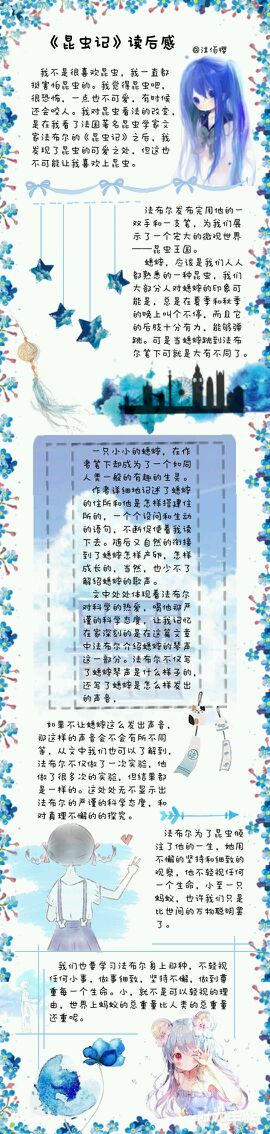 《昆虫记》读后感
我不是很喜欢昆虫，我一直都
挺害怕昆虫的。我觉得昆虫吧，
很恐怖，一点也不可爱，有时候
还会咬人。我对昆虫看法的改变，
是在我看了法国著名昆虫学家文
家法布尔的《昆虫记》之后，我
发现了昆虫的可爱之处，但这也
不可能让我喜欢上昆虫。
法布尔发布完用他的一
双手和一支笔，为我们展
示了一个宏大的微观世界
——昆虫王国。
蟋蟀，应该是我们人人
都熟悉的一种昆虫，我们
大部分人对蟋蟀的印象可
能是，总是在夏季和秋季
的晚上叫个不停，而且它
的后肢十分有力，能够弹
跳。可是当蟋蟀跳到法布
尔笔下可就是大有不同了。
一只小小的蟋蟀，在作
者笔下却成为了一个如同
人类一般的有趣的生灵。
作者详细地记述了蟋蟀
的住所和他是怎样搭建住
所的，一个个设问和生动
的语句，不断促使着我读
下去。随后又自然的衔接
到了蟋蟀怎样产卵，怎样
成长的，当然，也少不了
解绍蟋蟀的歌声。
文中处处体现着法布尔
对科学的热爱，喝他那严
谨的科学态度，让我记忆
在家深刻的是在这篇文章
中法布尔介绍蟋蟀的琴声
这一部分。法布尔不仅写
了蟋蟀琴声是什么样子的，
还写了蟋蟀是怎么样发出
的声音，
如果不让蟋蟀这么发出声音，
那这样的声音会不会有所不同
等，从文中我们也可以了解到，
法布尔不仅做了一次实验，他
做了很多次的实验，但结果都
是一样的。这处处无不显示出
法布尔的严谨的科学态度，和
对真理不懈的的探究。
法布尔为了昆虫倾
注了他的一生，她用
不懈的坚持和细致的
观察，他不轻视任何
一个生命，小至一只
蚂蚁，也许我们只是
比世间的万物聪明罢
了。
我们也要学习法布尔身上那种，不轻视
任何小事，做事细致，坚持不懈，做到尊
重每一个生命。小，就不是可以轻视的理
由，世界上蚂蚁的总重量比人类的总重量
还重呢。